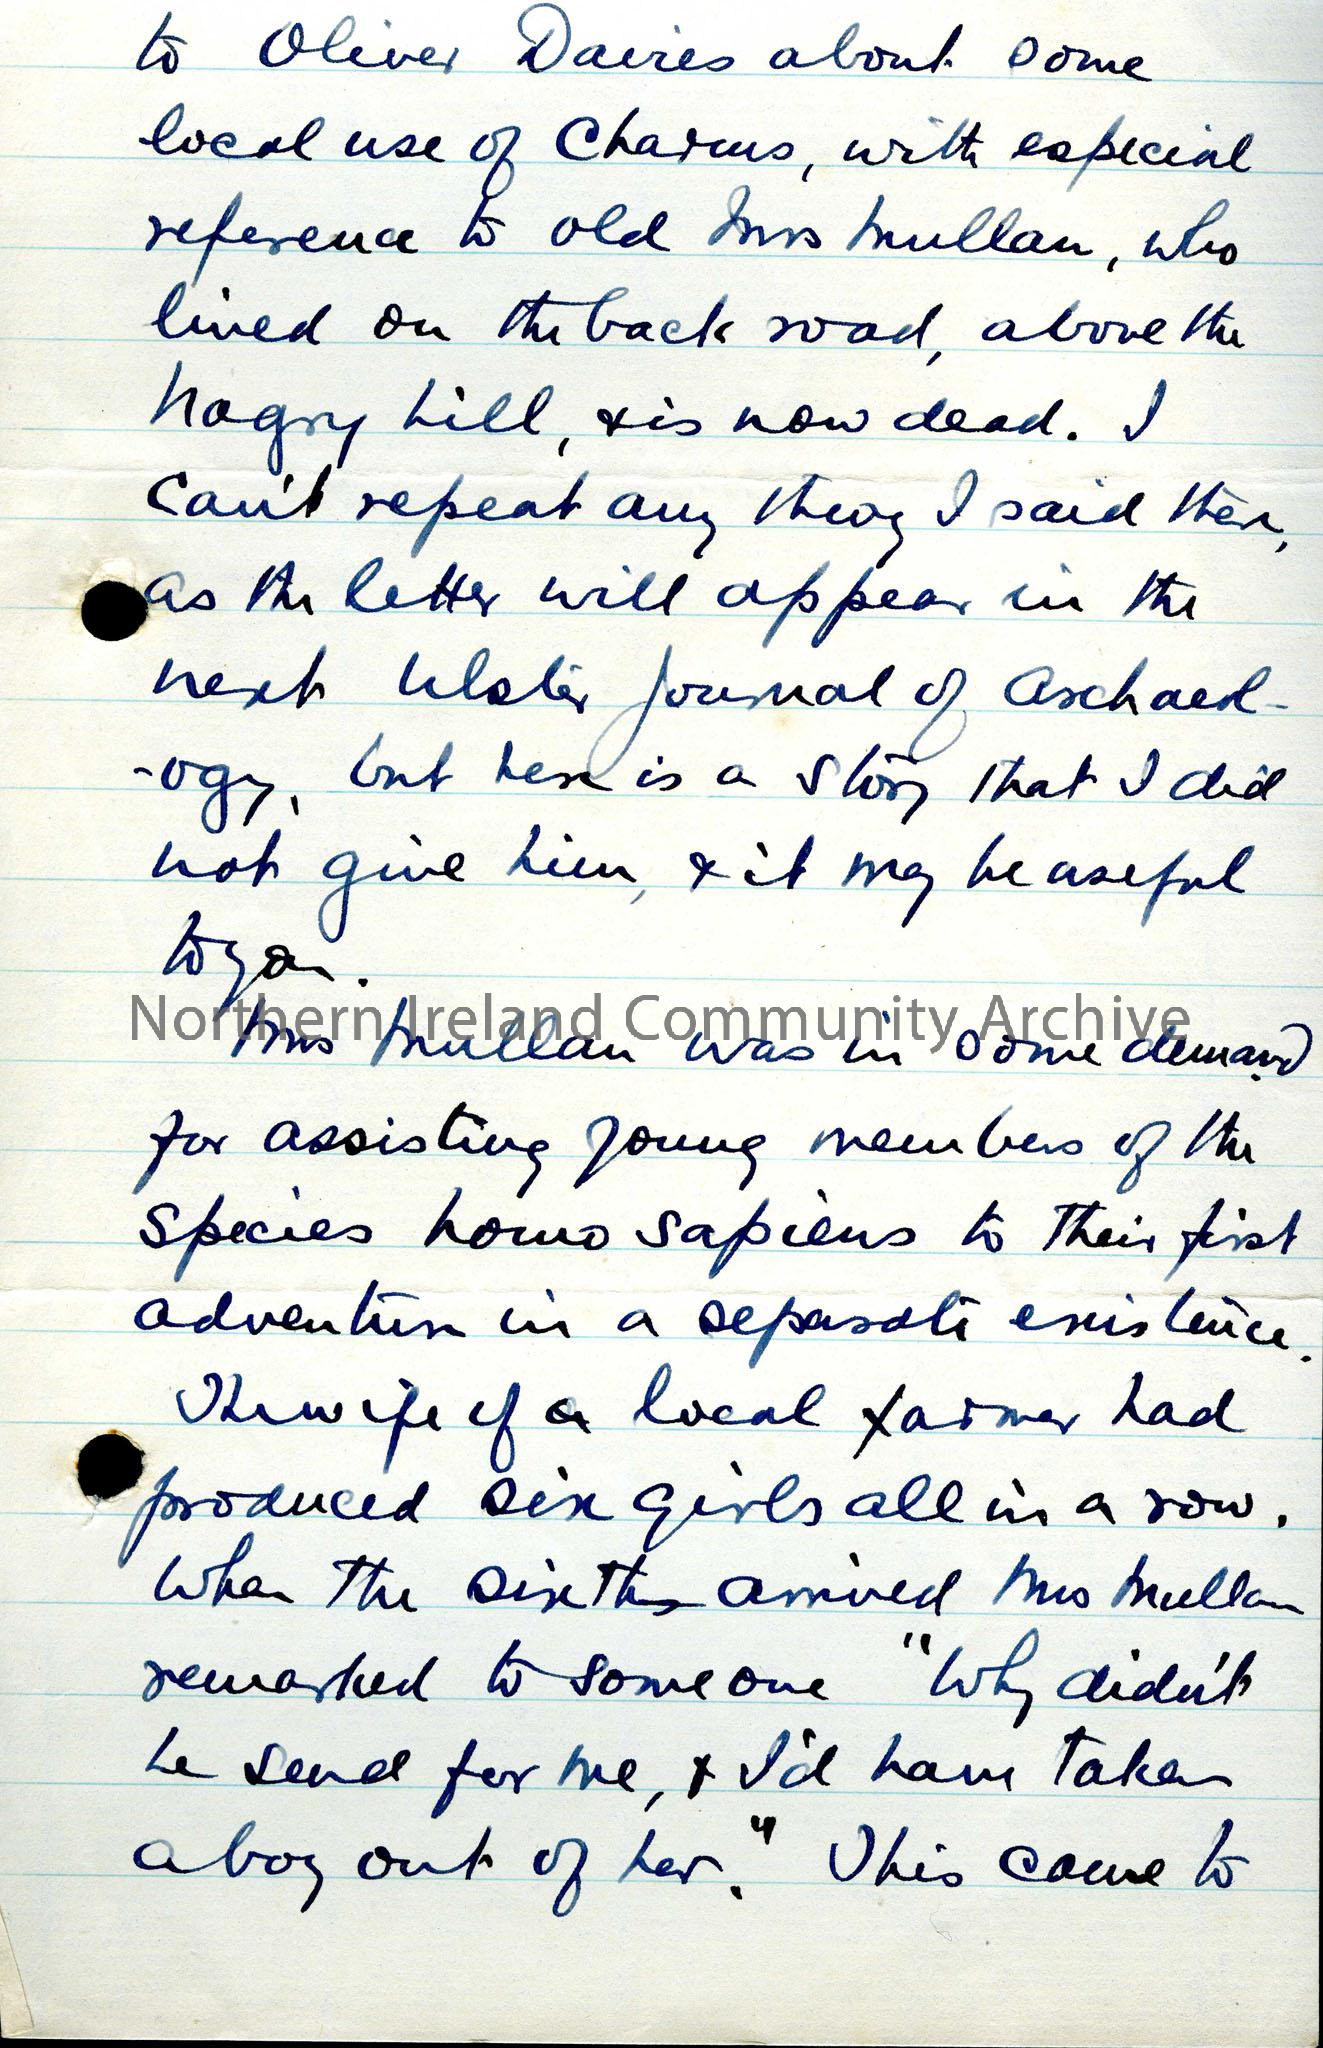 to Oliver Davies about some
local use of Charms, with especial
reference to old Mrs Mullan, who
lived on the back road, above the
hagry hill, & is now dead. I
can't repeat any thing I said then,
as the letter will appear in the
next Ulster Journal of Archaeol-
-ogy, but here is a story that I did
not give him, & it may be useful
to you.
Northern Ireland Community Archive
Mrs Mullan was in some demand
for assisting young members of the
species homo sapiens to their first
adventure in a separate existence.
The wife of a local farmer had
produced six girls all in a row.
When the sixth arrived Mrs Mullan
remarked to someone "Why didn't
he send for me, & I'd have taken
a boy out of her." This came to